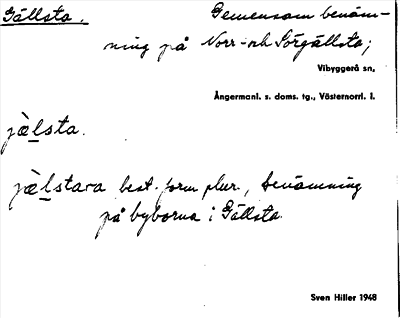 Gällsta. Gemensam benäm-
ning på Norr- och Sörgällsta;
Vibyggerå sn,
Ångermanl. s. doms. tg., Västernorrl. l.
jæ̀lsta.
jæ̀lstara best. form plur., benämning
på byborna i Gällsta.
Sven Hiller 1948